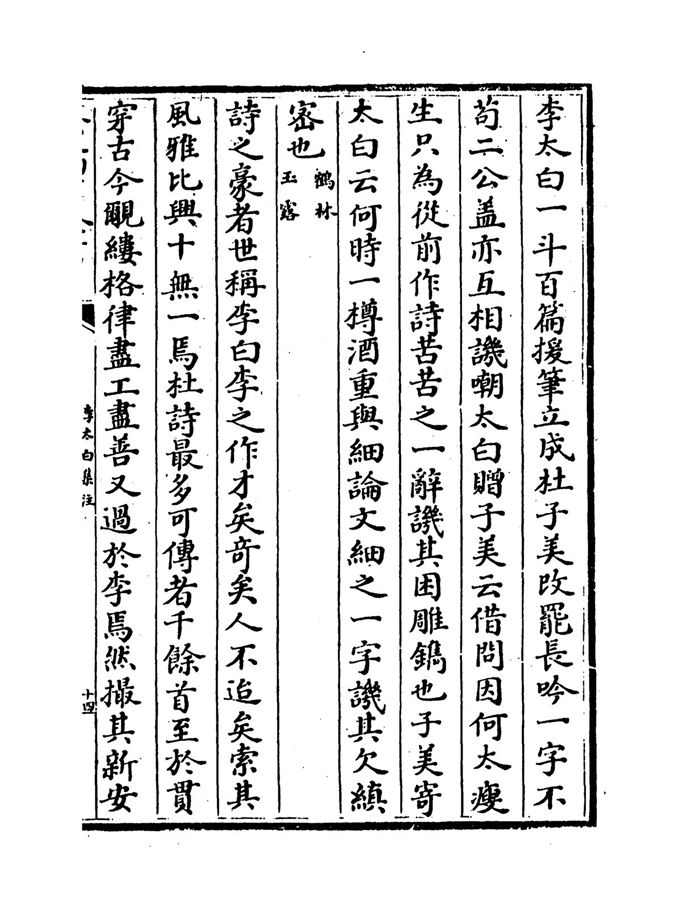 李太白一斗百篇援筆立成杜子美改罷長吟一字不
苟二公盖亦互相譏嘲太白贈子美云借問因何太瘦
生只為從前作詩苦苦之一辭譏其困雕鐫也子美寄
太白云何時一樽酒重與細論文細之一字譏其欠縝
密也鶴林玉露
詩之豪者世稱李白李之作才矣竒矣人不迨矣索其
風雅比興十無一焉杜詩最多可傳者千餘首至於貫
穿古今覼縷格律盡工盡善又過於李焉然撮其新安
李太白集注
十四